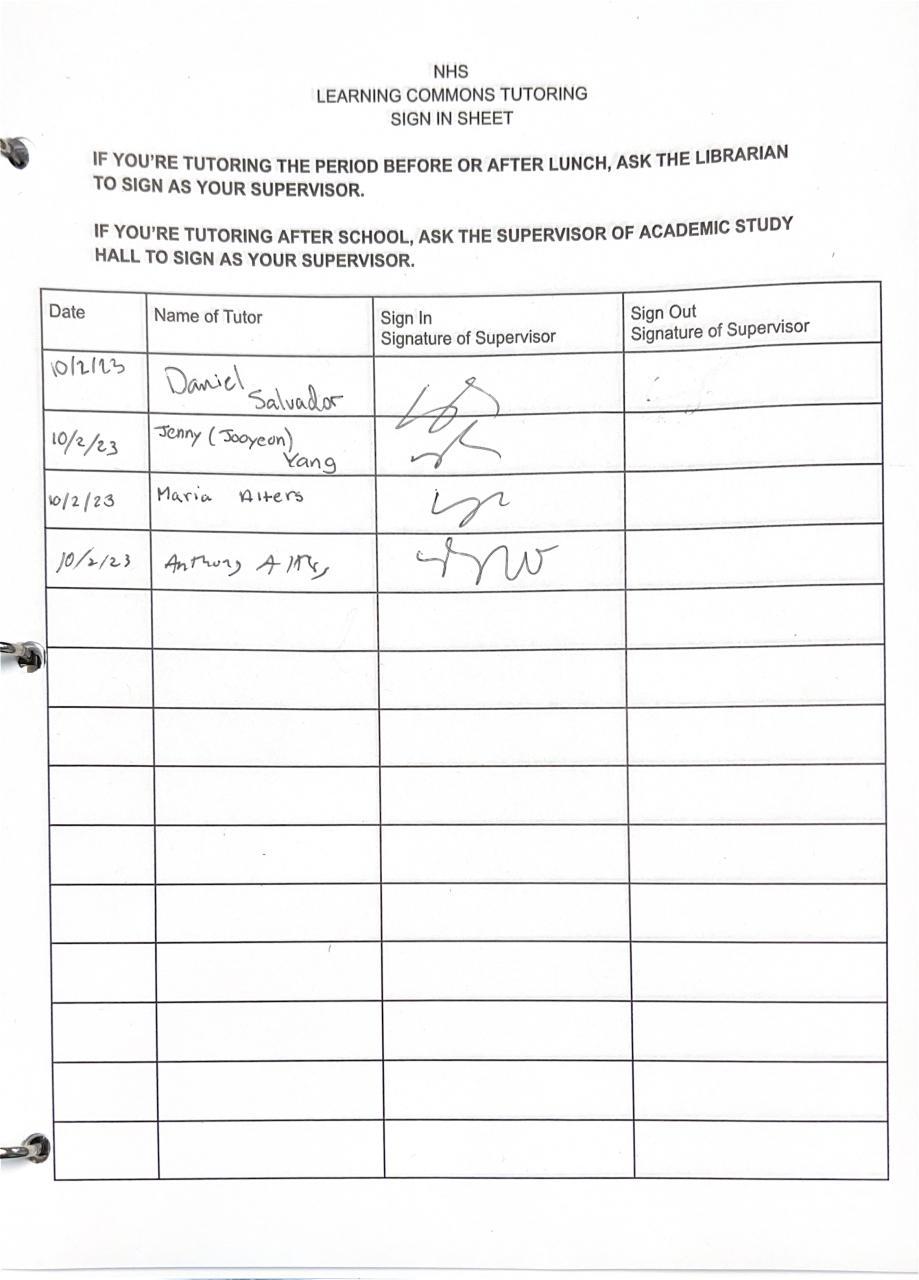 NHS
LEARNING COMMONS TUTORING
SIGN IN SHEET
IF YOU'RE TUTORING THE PERIOD BEFORE OR AFTER LUNCH, ASK THE LIBRARIAN
TO SIGN AS YOUR SUPERVISOR.
IF YOU'RE TUTORING AFTER SCHOOL, ASK THE SUPERVISOR OF ACADEMIC STUDY
HALL TO SIGN AS YOUR SUPERVISOR.
Date
Name of Tutor
Sign In
Signature of Supervisor
Sign Out
Signature of Supervisor
10/2/23
Daniel
Salvador
10/2/23
Jenny (Jooyeon)
Yang
10/2/23
Maria Alters
10/2/23
Anthony